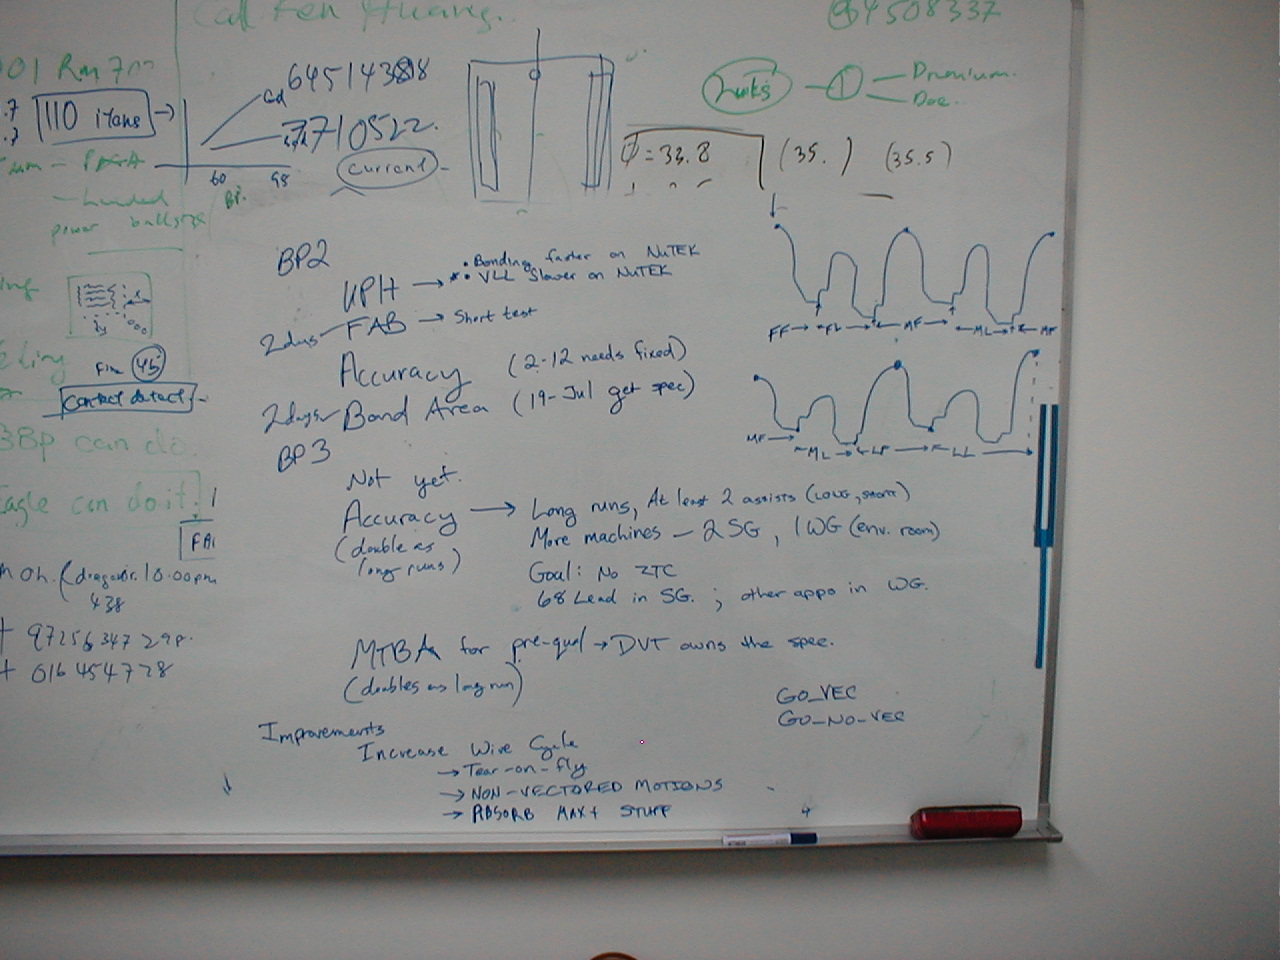 Call
64508337
64514388
110 items
7710522.
current
60
98
BP.
Premium.
Doc.
Φ = 33.8
(35. )
(35.5)
can do
Eagle can do it!
45
contact detect
10.00pm
438
016 454728
BP2
UPH → • Bonding faster on NuTEK
• VLL Slower on NuTEK
2 days FAB → Short test
Accuracy (2-12 needs fixed)
2 days Bond Area (19-Jul get spec)
BP3
Not yet.
Accuracy → Long runs, At least 2 assists
(double as long runs)
More machines – 2 SG, 1 WG (env. room)
Goal: No ZTC
68 Lead in SG. ; other apps in WG.
MTBA for pre-qual → DVT owns the spec.
(doubles as long run)
FF → ← FL → ← MF → ← ML → ← MF
MF → ← ML → ← LF → ← LL →
GO_VEC
GO_NO_VEC
Improvements
Increase Wire Cycle
→ Tear-on-fly
→ NON-VECTORED MOTIONS
→ ABSORB MAX+ STUFF